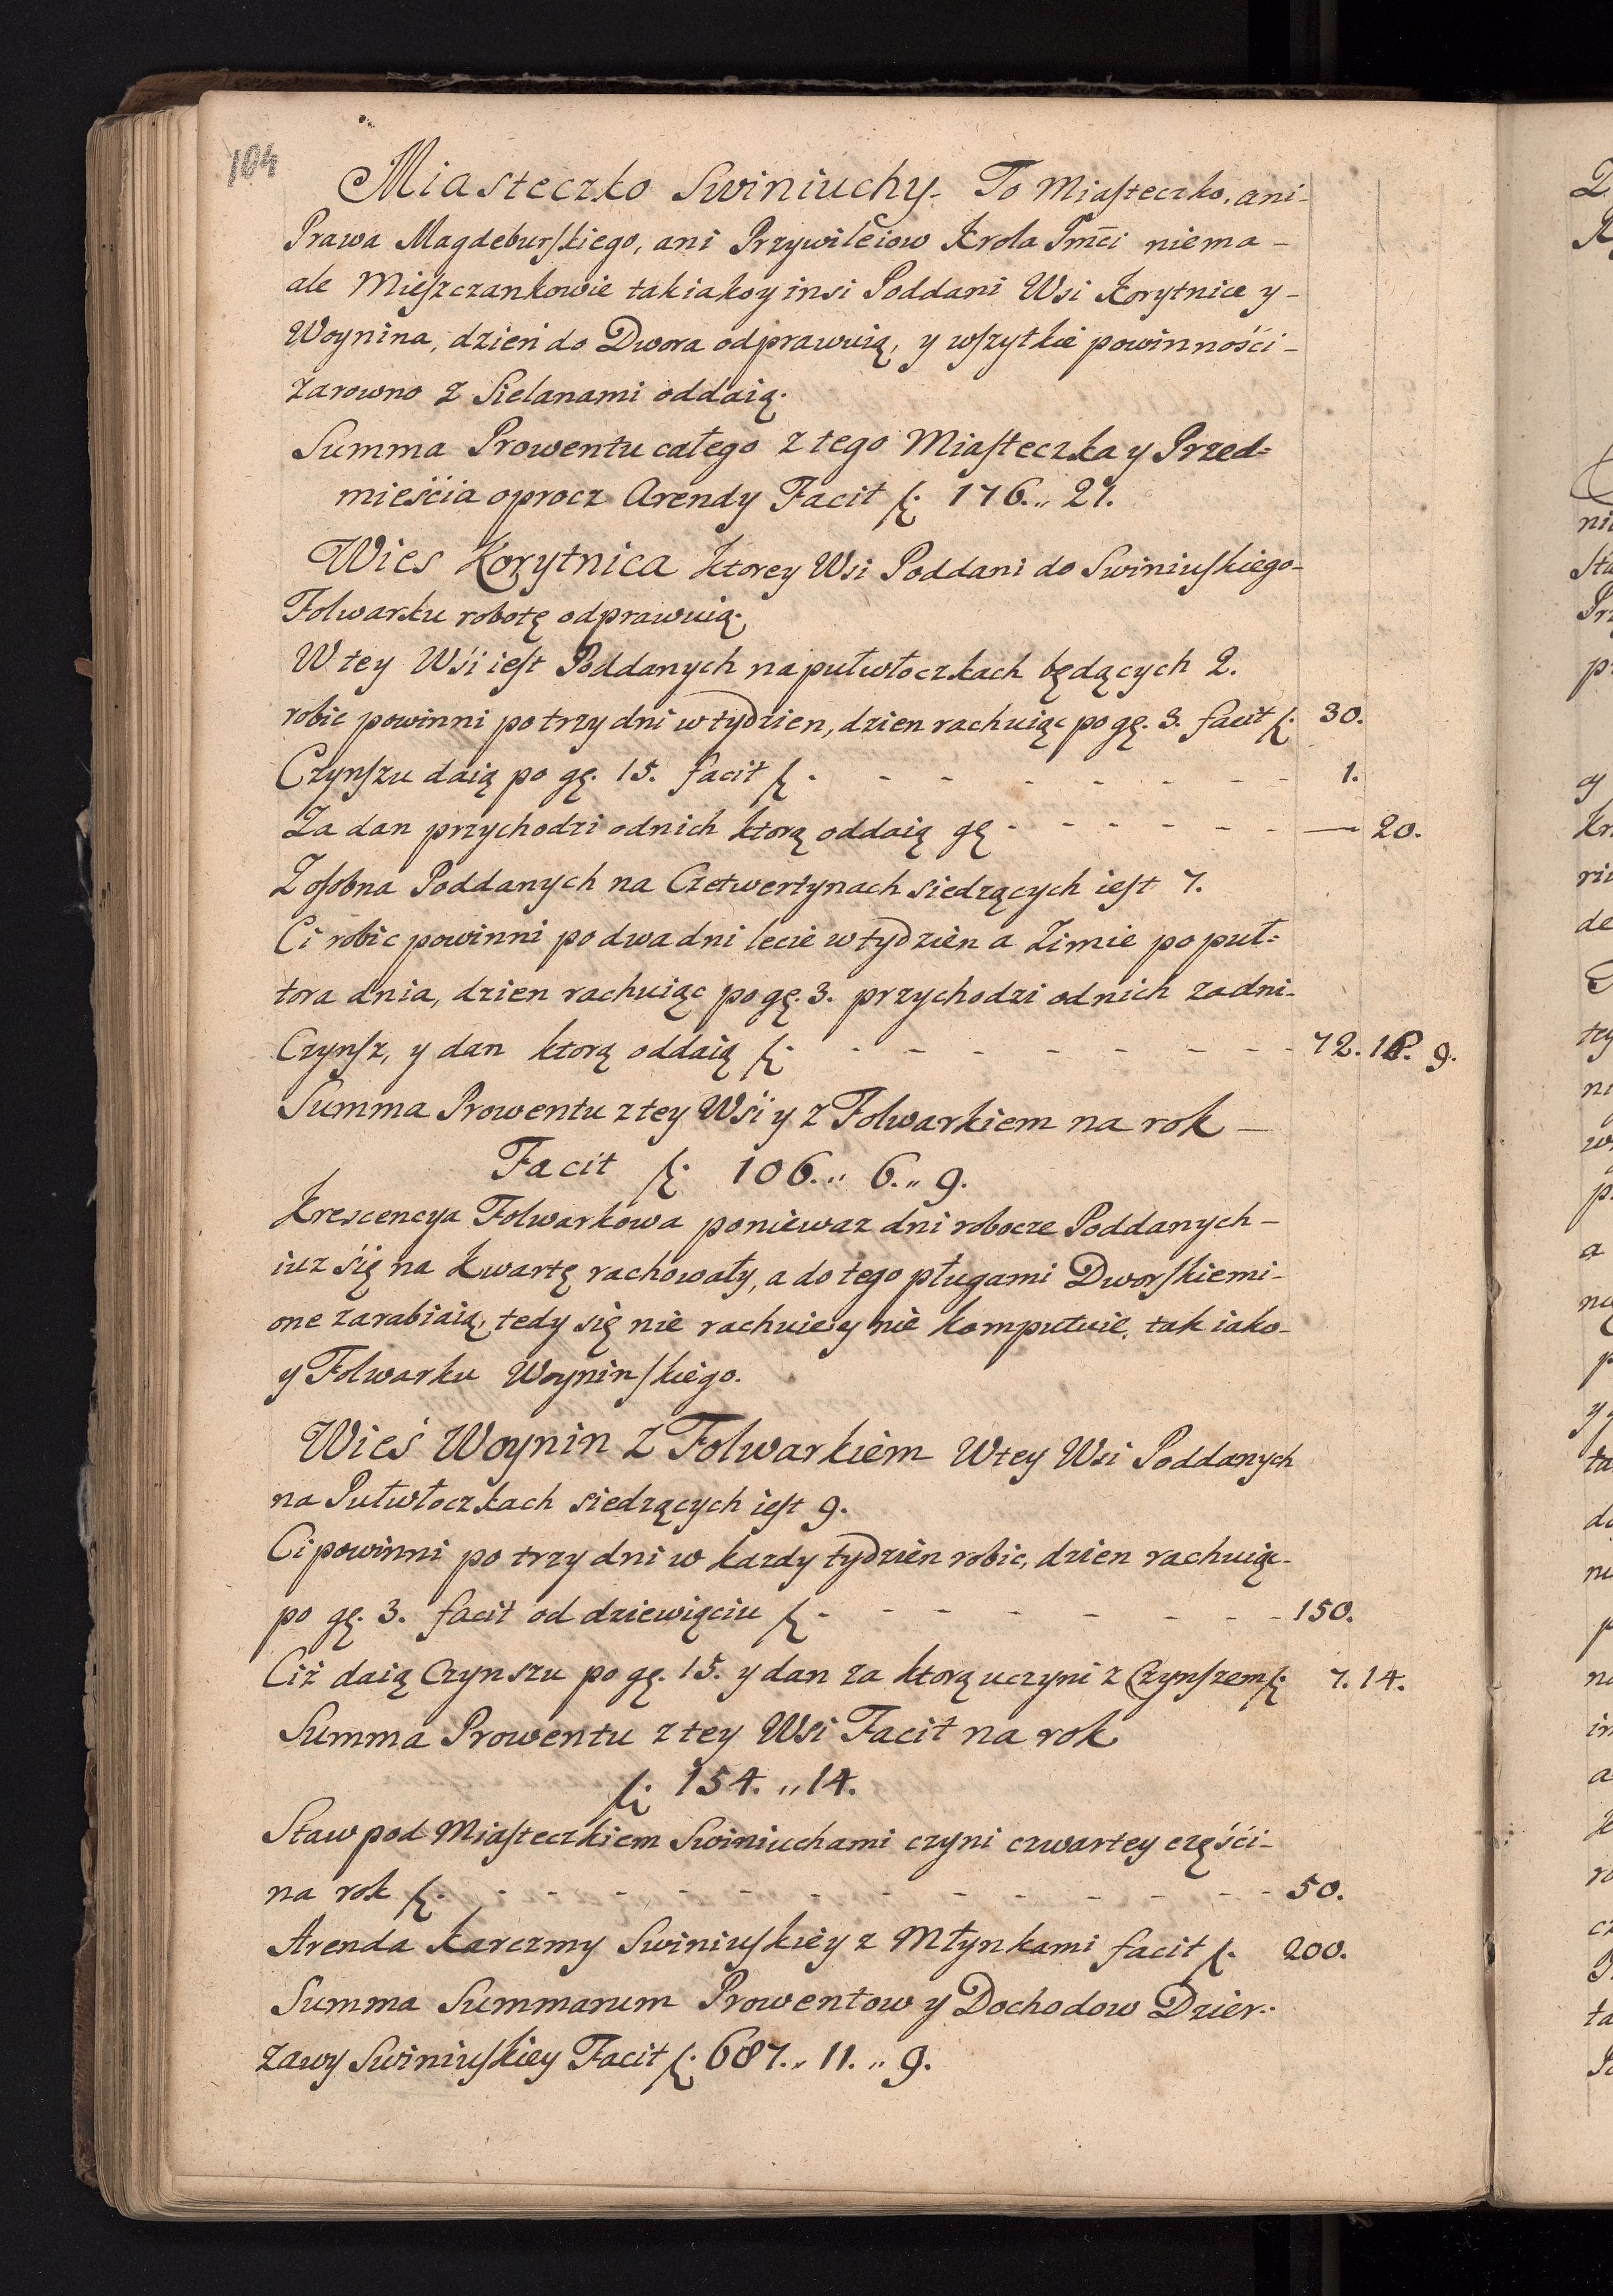 104
Miasteczko Swiniuchy. To Miasteczko, ani
Prawa Magdeburskiego, ani Przywileiow Krola Jmći niema
ale Mieszczankowie tak iako y insi Poddani Wsi Korytnice y
Woynina, dzień do Dwora odprawuią, y wszytkie powinnośći
zarowno z Sielanami oddaią.
Summa Prowentu całego z tego Miasteczka y Przed=
mieśćia oprocz Arendy Facit f. 176.,, 21.
Wies Korytnica ktorey Wsi Poddani do Swiniuskiego
Folwarku robotę odprawuią.
W tey Wśi iest Poddanych na pułwłoczkach będących 2.
robic powinni po trzy dni w tydzien, dzien rachuiąc po gę. 3. facit f. 30.
Czynszu daią po gę. 15. facit f. - - - - - - - 1.
Za dan przychodzi odnich ktorą oddaią gę - - - - - - — 20.
Z osobna Poddanych na Czetwertynach siedzących iest 7.
Ci robic powinni po dwa dni lecie w tydzien a Zimie po puł=
tora dnia, dzien rachuiąc po gę. 3. przychodzi od nich za dni
Czynsz, y dan ktorą oddaią f. - - - - - - - 72. 16. 9.
Summa Prowentu z tey Wśi y z Folwarkiem na rok —
Facit f. 106.,, 6.,, 9.
Krescencya Folwarkowa poniewaz dni robocze Poddanych
iuz śię na Kwartę rachowały, a do tego pługami Dworskiemi
one zarabiaią, tedy się nie rachuie y nie komputuie, tak iako
y Folwarku Woyninskiego.
Wieś Woynin z Folwarkiem W tey Wsi Poddanych
na Pułwłoczkach siedzących iest 9.
Ci powinni po trzy dni w kazdy tydzien robic, dzien rachuiąc
po gę. 3. facit od dziewiąciu f. - - - - - - - 150.
Ciż daią Czynszu po gę. 15. y dan za ktorą uczyni z Czynszem f. 7. 14.
Summa Prowentu z tey Wsi Facit na rok
f. 154.,, 14.
Staw pod Miasteczkiem Swiniuchami czyni czwartey częśći
na rok f. - - - - - - - - - - - - 50.
Arenda Karczmy Swiniuskiey z Młynkami facit f. 200.
Summa Summarum Prowentow y Dochodow Dzier=
zawy Swiniuskiey Facit f. 687.,, 11.,, 9.